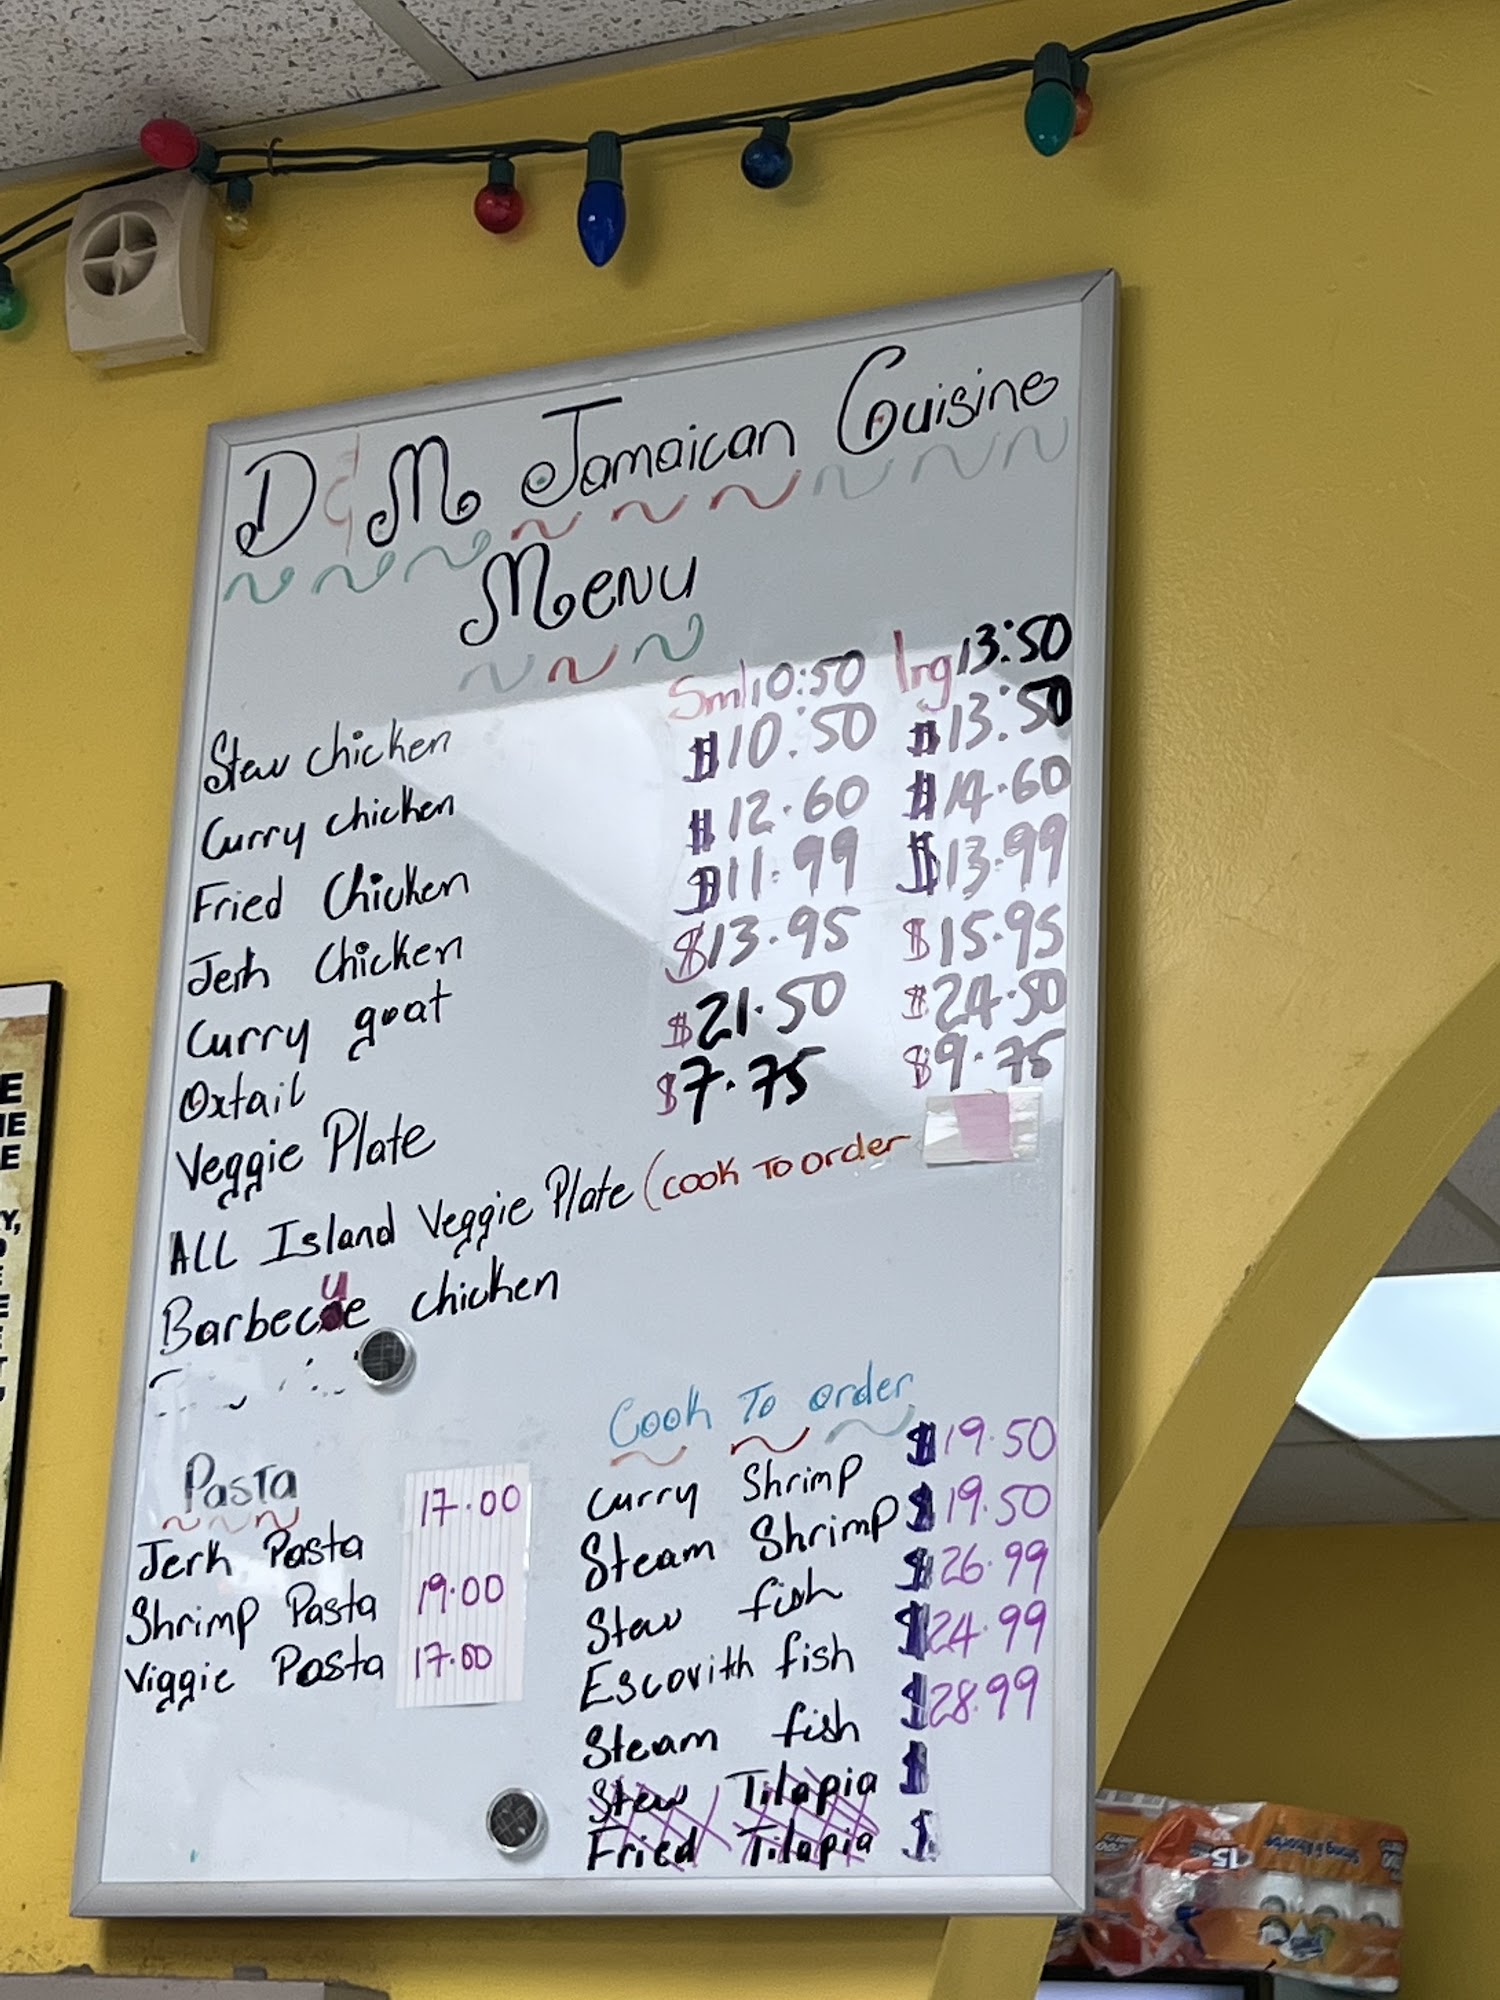 D & M Jamaican Cuisine
Menu
Sml lrg
Stew chicken 10:50 13:50
Curry chicken $10:50 $13:50
Fried Chicken $12.60 $14.60
Jerk Chicken $11.99 $13.99
Curry goat $13.95 $15.95
Oxtail $21.50 $24.50
Veggie Plate $7.75 $9.75
ALL Island Veggie Plate (cook To order
Barbecue chicken
Pasta
Jerk Pasta 17.00
Shrimp Pasta 19.00
Viggie Pasta 17.00
Cook To order
Curry Shrimp $19.50
Steam Shrimp $19.50
Stew fish $26.99
Escovith fish $24.99
Steam fish $28.99
Stew Tilapia $
Fried Tilapia $